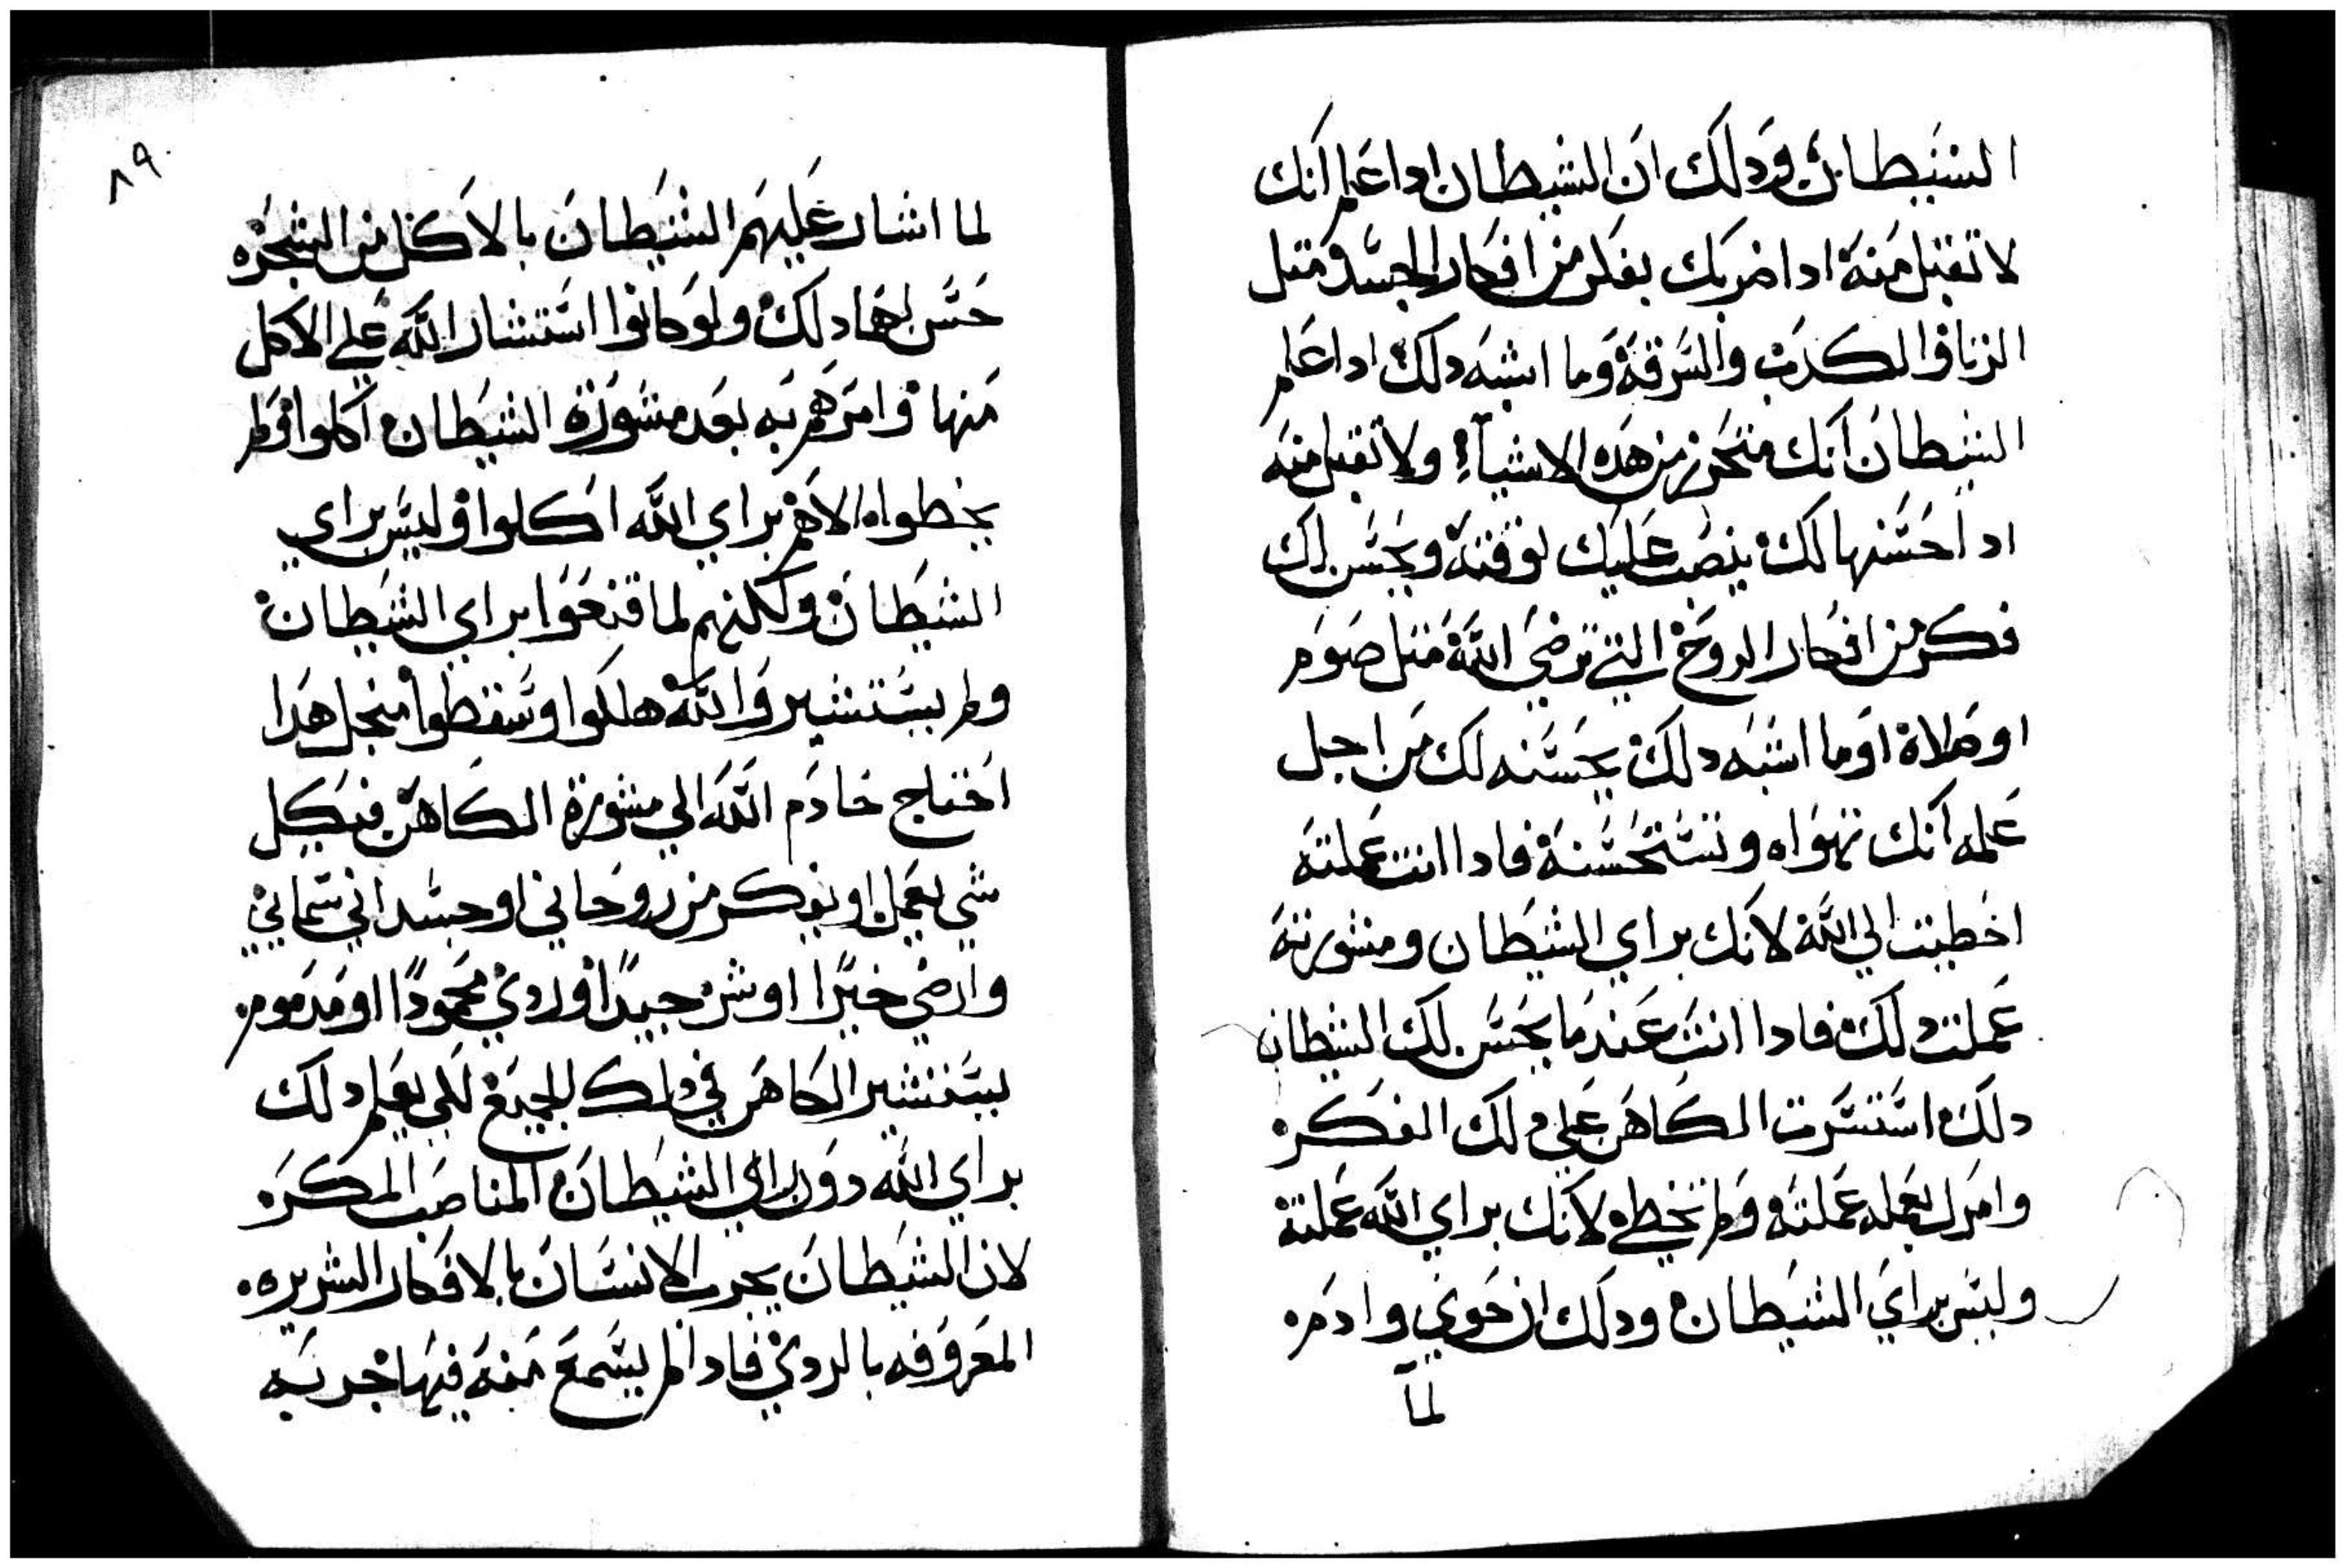 الشيطان ودلك ان الشيطان ادا علم انك
لا تقبل منه ادا ضربك بفكر من افكار الجسد متل
الزنا والكدب والسرقة وما اشبه دلك ادا علم
الشيطان انك متحرز من هده الاشياء ولا تقبل منه
اد احسنها لك ينصب عليك لوقته ويحسن لك
فكر من افكار الروح التي ترضي الله متل صوم
او صلاة او ما اشبه دلك يحسنه لك من اجل
علمه انك تهواه وتستحسنه فادا انت عملته
اخطيت الي الله لانك براي الشيطان ومشورته
عملت دلك فادا انت عندما يحسن لك الشيطان
دلك استشرت الكاهن علي دلك الفكره
وامرك بعمله عملته ولم تخطي لانك براي الله عملته
وليس براي الشيطان ودلك ان حوي وادمه
لما
٨٩
لما اشار عليهم الشيطان بالاكل من الشجره
حسن لهما دلك ولو كانوا استشار الله علي الاكل
منها وامرهم به بعد مشورة الشيطان اكلوا ولم
يخطواه لانهم براي الله اكلوا وليس براي
الشيطان ولكنهم لما قنعوا براي الشيطان
ولم يستشيروا الله هلكوا وسقطوا منجل هدا
احتاج خادم الله الي مشورة الكاهن في كل
شي يعمل او يفكر من روحاني او جسداني سماني
وارضي خيرا او شر جيدا وردي محمودا او مدموم
يستشير الكاهن في دلك الجميع لكي يعلم دلك
براي الله دون راي الشيطان المناصب المكره
لان الشيطان يجرب الانسان بالافكار الشريره
المعروفه بالردي فادا لم يسمع منه فيها جربه